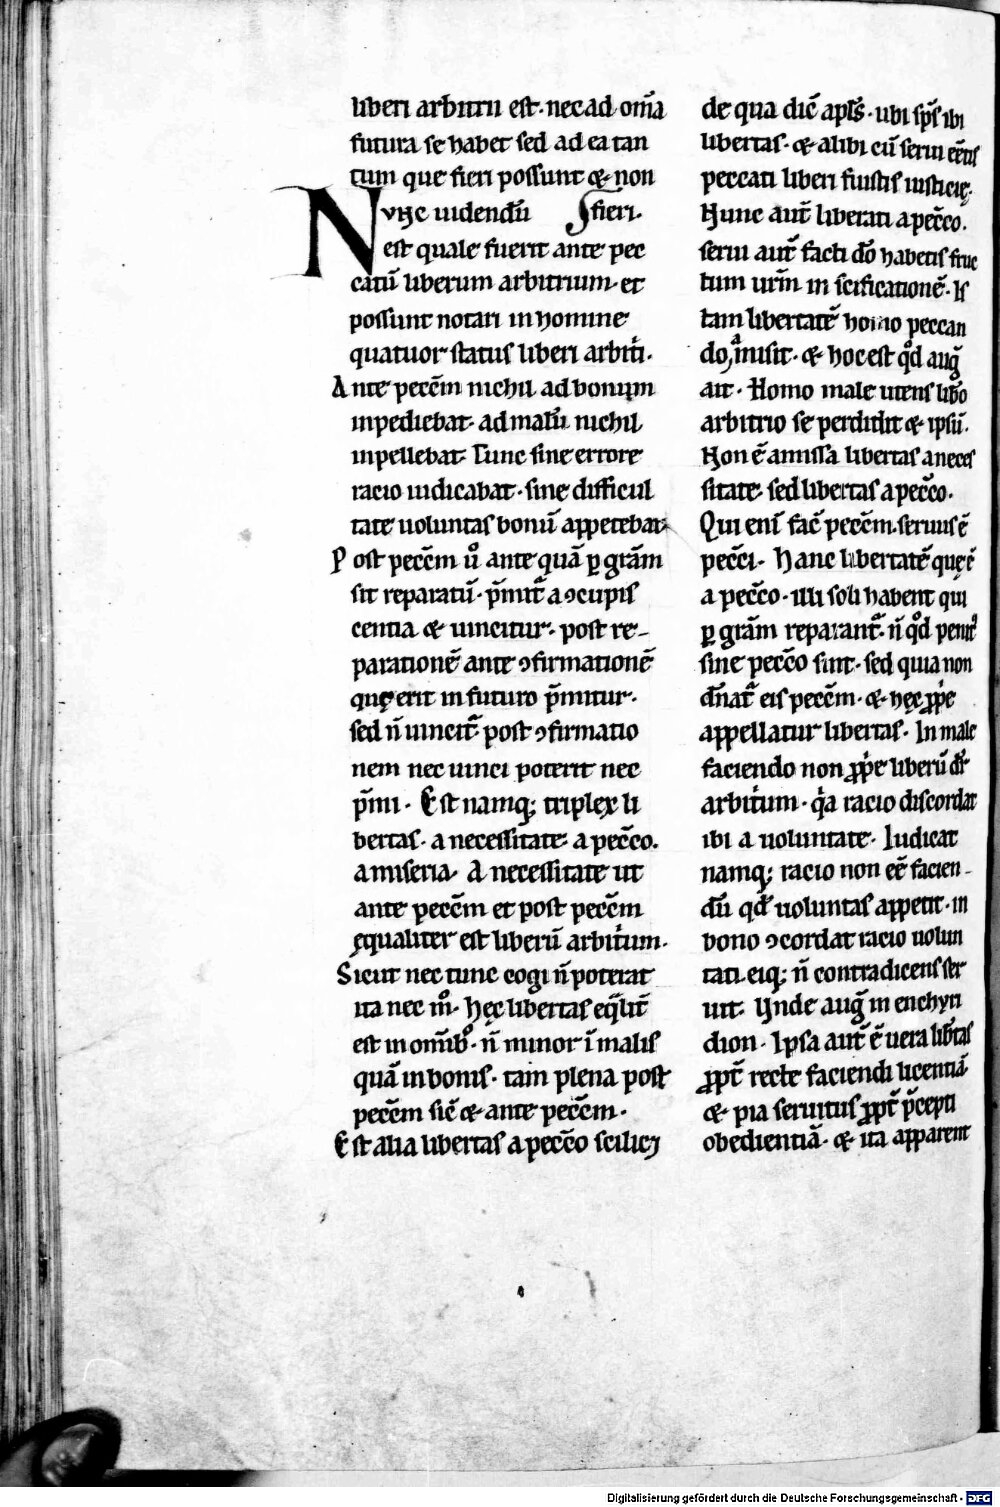 liberi arbitrii est· nec ad om̅a
futura se habet sed ad ea tan
tum que fieri possunt & non
Nvnc uidendu̅ fieri·
est quale fuerit ante pec
catu̅ liberum arbitrium· et
possunt notari in homine
quatuor status liberi arbitͥi·
Ante pecc̅m nichil ad bonum
inpediebat· ad malu̅ nichil
inpellebat· Tunc sine errore
racio iudicabat· sine difficul
tate uoluntas bonu̅ appetebat·
Post pecc̅m uͦ ante qua̅ ꝑ gra̅m
sit reparatu̅· p̅mit̅ a ꝯcupis
centia & uincitur· post re-
paratione̅ ante ꝯfirmatione̅
quę erit in futuro p̅mitur·
sed n̅ uincit̅· post ꝯfirmatio
nem nec uinci poterit nec
p̅mi· Est namq; triplex li
bertas· a necessitate· a pecc̅o·
a miseria· A necessitate ut
ante pecc̅m et post pecc̅m
ęqualiter est liberu̅ arbitͥum·
Sicut nec tunc cogi n̅ poterat
ita nec mͦ· hęc libertas eq̅lit̅
est in om̅ibꝰ· n̅ minor i̅ malis
qua̅ in bonis· tam plena post
pecc̅m sic̅ & ante pecc̅m·
Est alia libertas a pecc̅o scilicꝫ
de qua dic̅ apl̅s· ubi sp̅s ibi
libertas· & alibi cu̅ serui e̅e̅tis
peccati liberi fuistis iusticię·
Nunc aut̅ liberati a pecc̅o·
serui aut̅ facti d̅o habetis fruc
tum ur̅m in sc̅ificatione̅· Is
tam libertate̅ homo peccan
do amisit· & hoc est qͦd aug̅
ait· Homo male utens lib̅o
arbitrio se perdidit & ipsu̅·
Non e̅ amissa libertas a neces
sitate· sed libertas a pecc̅o·
Qui eni̅ fac̅ pecc̅m· seruus e̅
pecc̅i· Hanc libertate̅ quę e̅
a pecc̅o· illi soli habent qui
ꝑ gra̅m reparant̅· n̅ qͦd penitꝰ
sine pecc̅o sint· sed quia non
d̅nat̅ eis pecc̅m· & hęc ꝓpͥe
appellatur libertas· In male
faciendo non ꝓpͥe liberu̅ dr̅
arbitͥum· qͥa racio discordat
ibi a uoluntate· Iudicat
namq; racio non ee̅ facien-
du̅ qd̅ uoluntas appetit· in
bono ꝯcordat racio uolun
tati eiq; n̅ contradicens ser
uit· Unde aug̅ in enchyri
dion· Ipsa aut̅ e̅ uera lib̅tas
ꝓpt̅ recte faciendi licentia̅·
& pia seruitus ꝓpt̅ p̅cepti
obedientia̅· & ita apparent
Digitalisierung gefördert durch die Deutsche Forschungsgemeinschaft · DFG